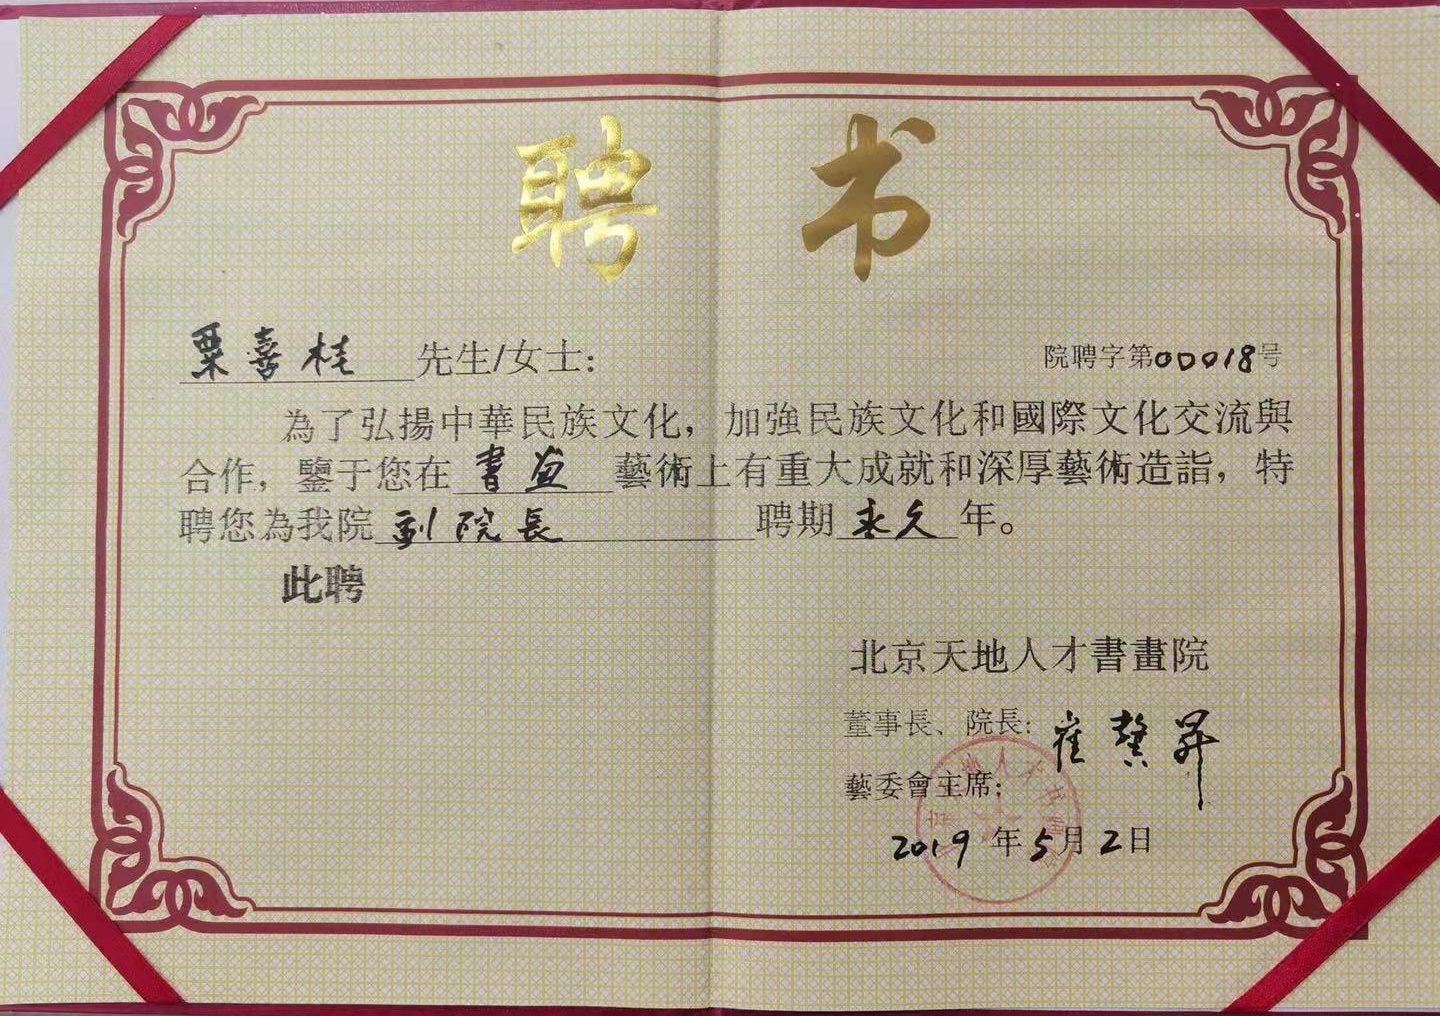 聘书
粟喜桂 先生/女士:
院聘字第00018号
為了弘揚中華民族文化, 加強民族文化和國際文化交流與
合作, 鑒于您在書画藝術上有重大成就和深厚藝術造詣, 特
聘您為我院副院長 聘期永久年。
此聘
北京天地人才書畫院
董事長、院長: 崔馨昇
藝委會主席:
2019年5月2日